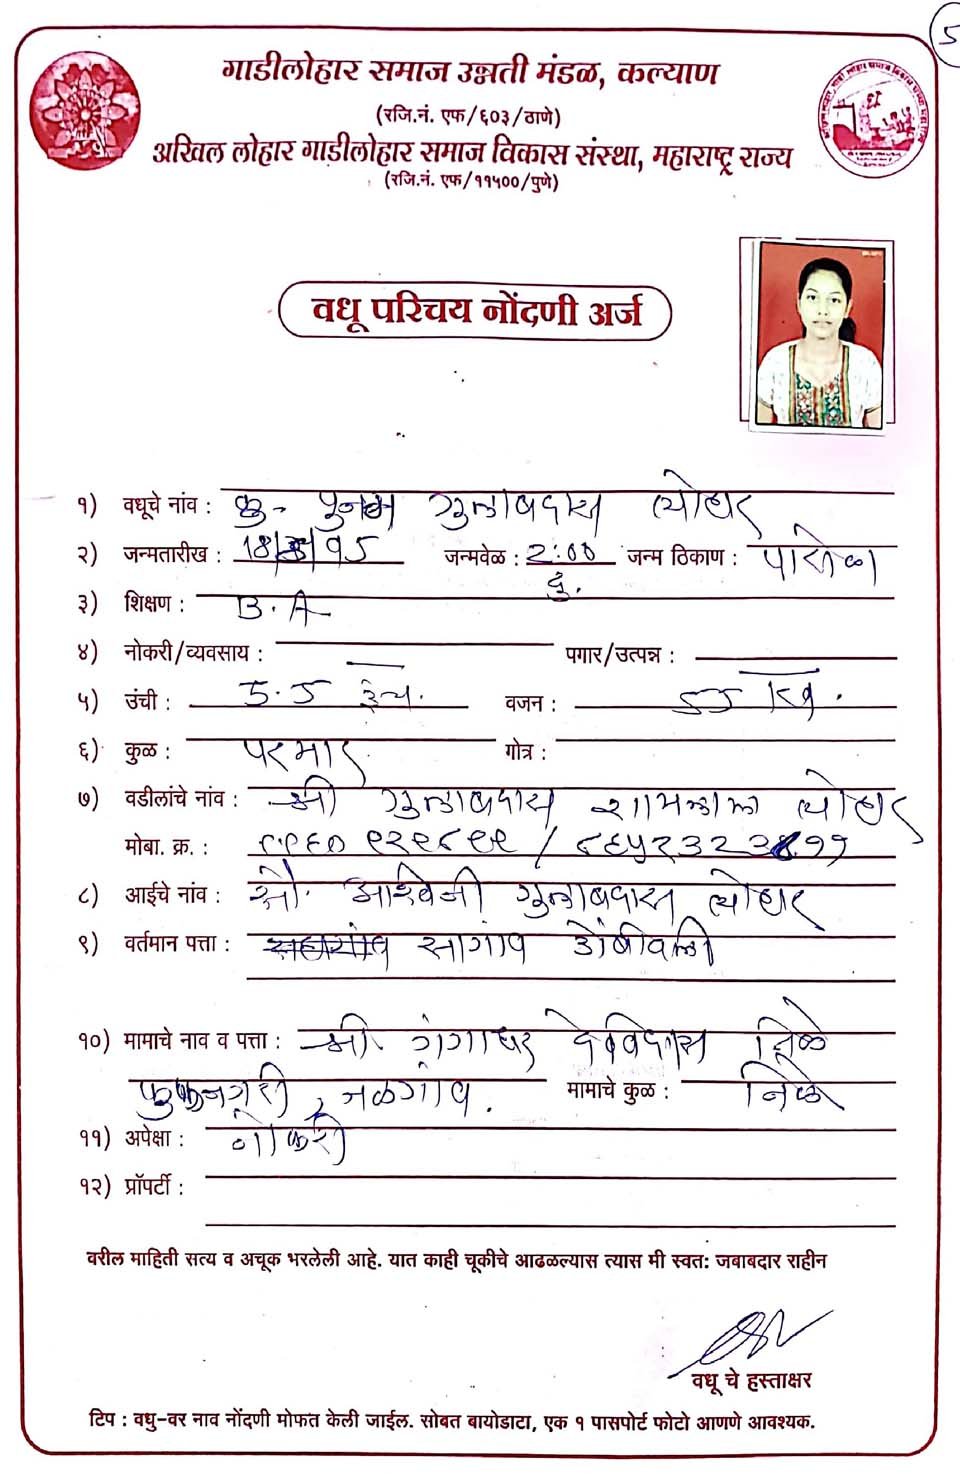 5
गाडीलोहार समाज उन्नती मंडळ, कल्याण
(रजि.नं. एफ/६०३/ठाणे)
अखिल लोहार गाडीलोहार समाज विकास संस्था, महाराष्ट्र राज्य
(रजि.नं. एफ/११५००/पुणे)
वधू परिचय नोंदणी अर्ज
१) वधूचे नांव : कु. पुनम गुलाबदास लोहार
२) जन्मतारीख : 18/ /95 जन्मवेळ : 2:00 दु. जन्म ठिकाण : पारोळा
३) शिक्षण : B.A
४) नोकरी/व्यवसाय : — पगार/उत्पन्न : —
५) उंची : 5.5 इंच. वजन : 55 kg.
६) कुळ : परमार गोत्र :
७) वडीलांचे नांव : श्री गुलाबदास शामलाल लोहार
मोबा. क्र. :
८) आईचे नांव : सौ. गुलाबदास लोहार
९) वर्तमान पत्ता : सागांव डोंबीवली
१०) मामाचे नाव व पत्ता : श्री. गंगाधर देविदास निळे
जळगांव. मामाचे कुळ : निळे
११) अपेक्षा : नोकरी
१२) प्रॉपर्टी :
वरील माहिती सत्य व अचूक भरलेली आहे. यात काही चूकीचे आढळल्यास त्यास मी स्वत: जबाबदार राहीन
वधू चे हस्ताक्षर
टिप : वधु-वर नाव नोंदणी मोफत केली जाईल. सोबत बायोडाटा, एक १ पासपोर्ट फोटो आणणे आवश्यक.